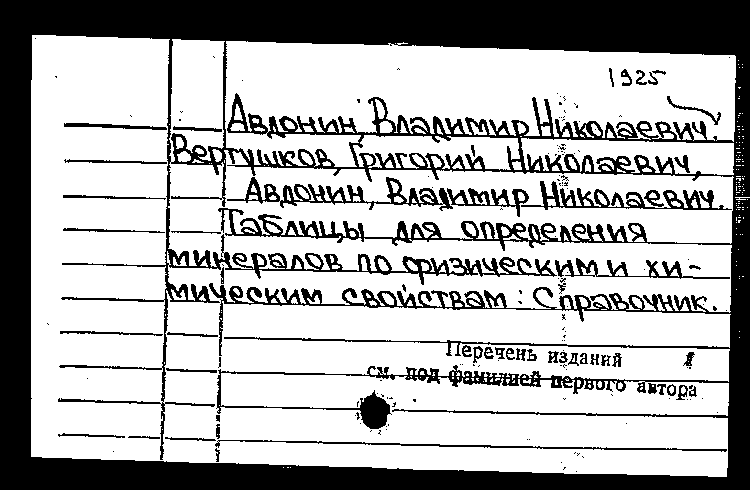 1925
Авдонин, Владимир Николаевич.
Вертушков, Григорий Николаевич,
Авдонин, Владимир Николаевич.
Таблицы для определения
минералов по физическим и хи-
мическим свойствам: Справочник.
Перечень изданий
см. под фамилией первого автора